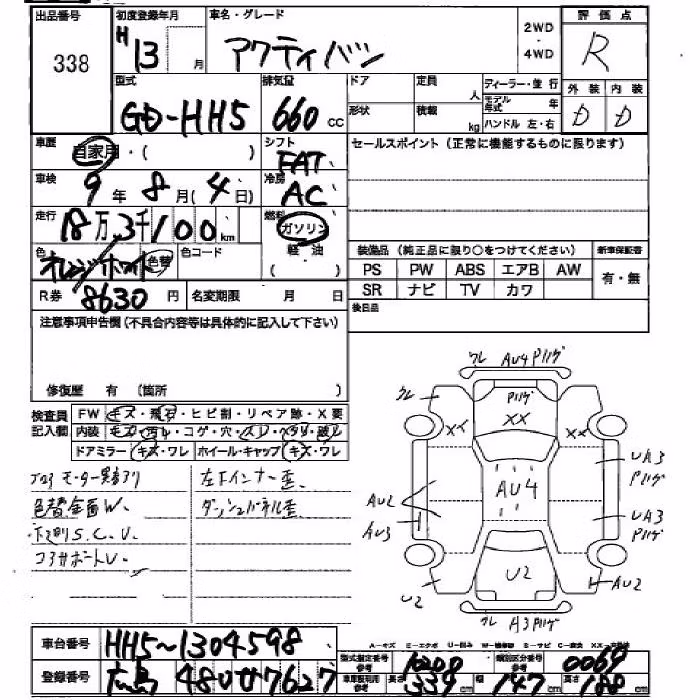 出品番号 初度登録年月 車名・グレード 2WD・4WD 評価点
338 H13月 アクティバン R
型式 排気量 ドア 定員 人 ディーラー・並行 外装 内装
GD-HH5 660cc 形状 積載 kg モデル年式 年 D D
ハンドル 左・右
車歴 自家用・( ) シフト FAT セールスポイント(正常に機能するものに限ります)
車検 9年8月(4日) 冷房 AC
走行 18万3千100km 燃料 ガソリン
色 オレンジ/ホワイト 色替 色コード 軽油 ( )
装備品(純正品に限り○をつけてください) 新車保証書
PS PW ABS エアB AW 有・無
SR ナビ TV カワ
R券 8630円 名変期限 月 日 後日品
注意事項申告欄(不具合内容等は具体的に記入して下さい)
修復歴 有 (箇所 )
検査員記入欄 FW キズ・飛石・ヒビ割・リペア跡・X要
内装 キズ・汚レ・コゲ・穴・スレ・ヘタリ・破レ
ドアミラー キズ・ワレ ホイール・キャップ キズ・ワレ
色替全面W. ダッシュパネル歪
下廻りS.C.U. 左Fインナー歪
コアサポートU.
ワレ AU4 Pハゲ
ワレ Pハゲ
XX XX XX
UA3 Pハゲ
AU2 AU4
AU3 UA3 Pハゲ
U2 U2 AU2
ワレ A3 Pハゲ
A-キズ E-エクボ U-凹み W-補修跡 S-サビ C-腐食 XX-交換済
車台番号 HH5~1304598
登録番号 広島 480 サ 7627
型式指定番号 参考 10200 類別区分番号 参考 0069
車庫証明用 参考 長さ 339cm 幅 147cm 高さ 188cm